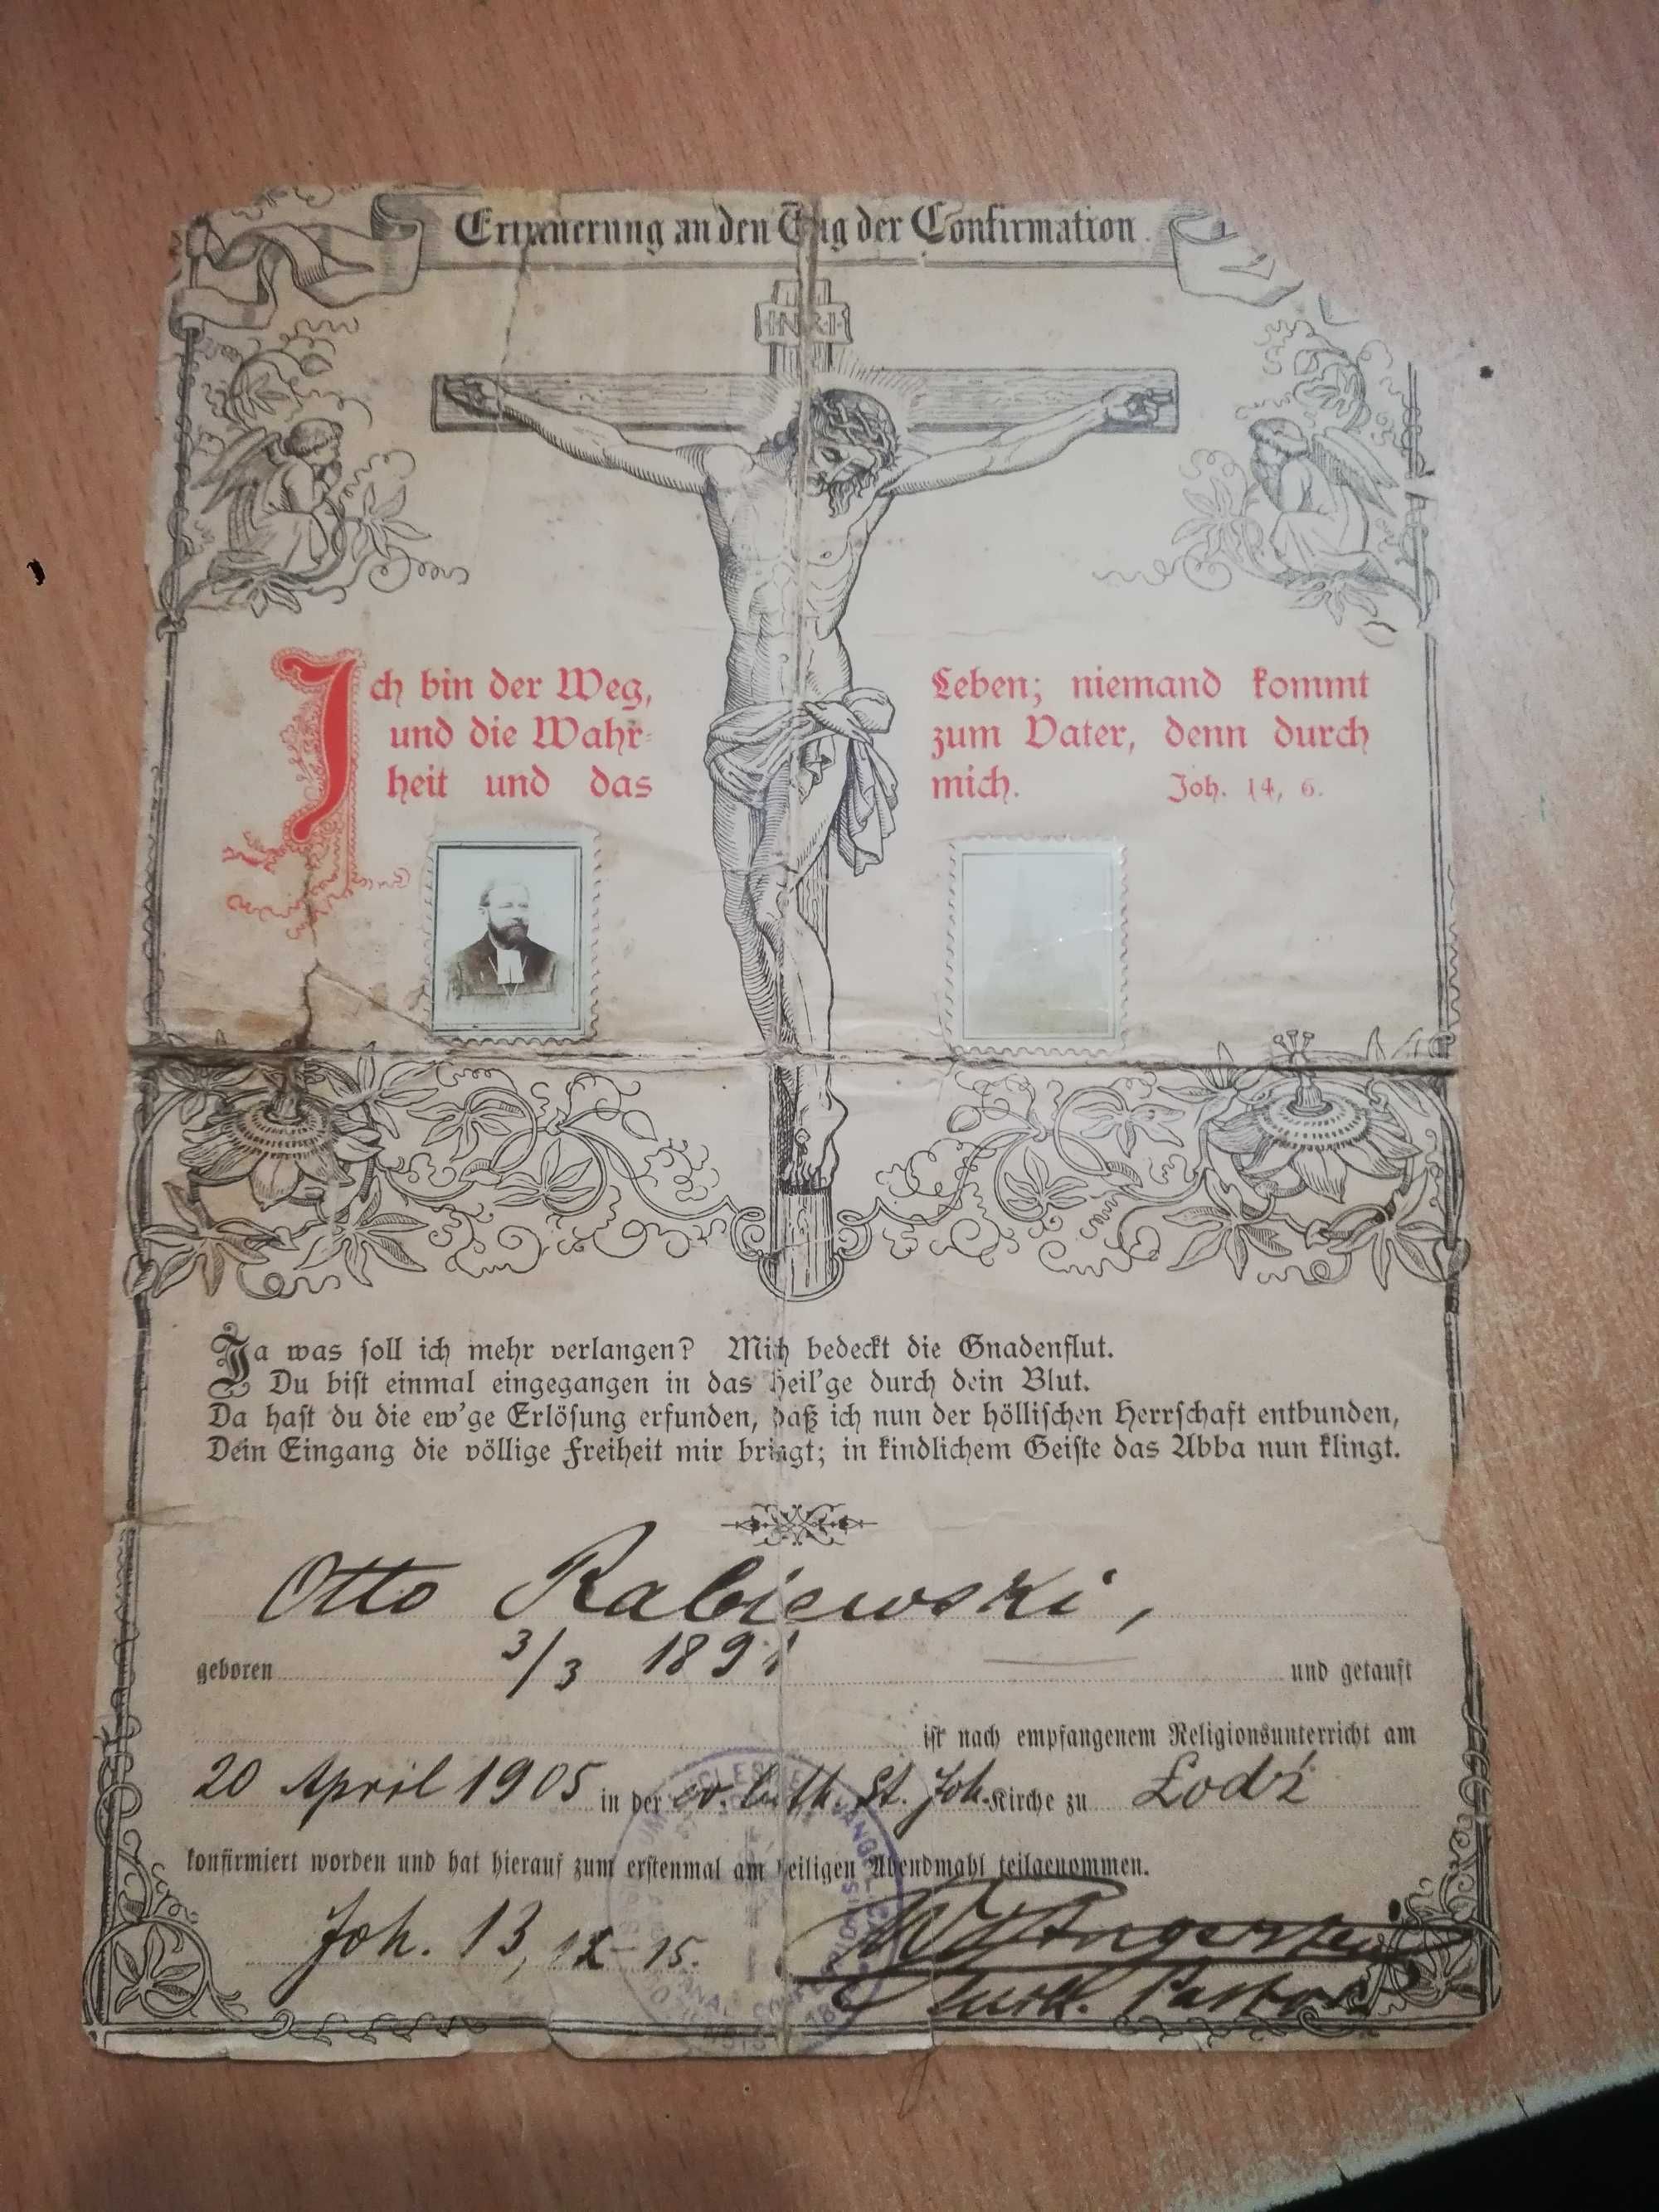 Erinnerung an den Tag der Confirmation.
I.N.R.I.
Ich bin der Weg,
und die Wahr-
heit und das
Leben; niemand kommt
zum Vater, denn durch
mich. Joh. 14, 6.
Ja was soll ich mehr verlangen? Mich bedeckt die Gnadenflut.
Du bist einmal eingegangen in das Heil'ge durch dein Blut.
Da hast du die ew'ge Erlösung erfunden, daß ich nun der höllischen Herrschaft entbunden,
Dein Eingang die völlige Freiheit mir bringt; in kindlichem Geiste das Abba nun klingt.
Otto Rabiewski,
geboren 3/3 1891 und getauft
ist nach empfangenem Religionsunterricht am
20 April 1905 in der ev. luth. St. Joh. Kirche zu Łodź
konfirmiert worden und hat hierauf zum erstenmal am heiligen Abendmahl teilgenommen.
Joh. 13, 12-15.
Pastor